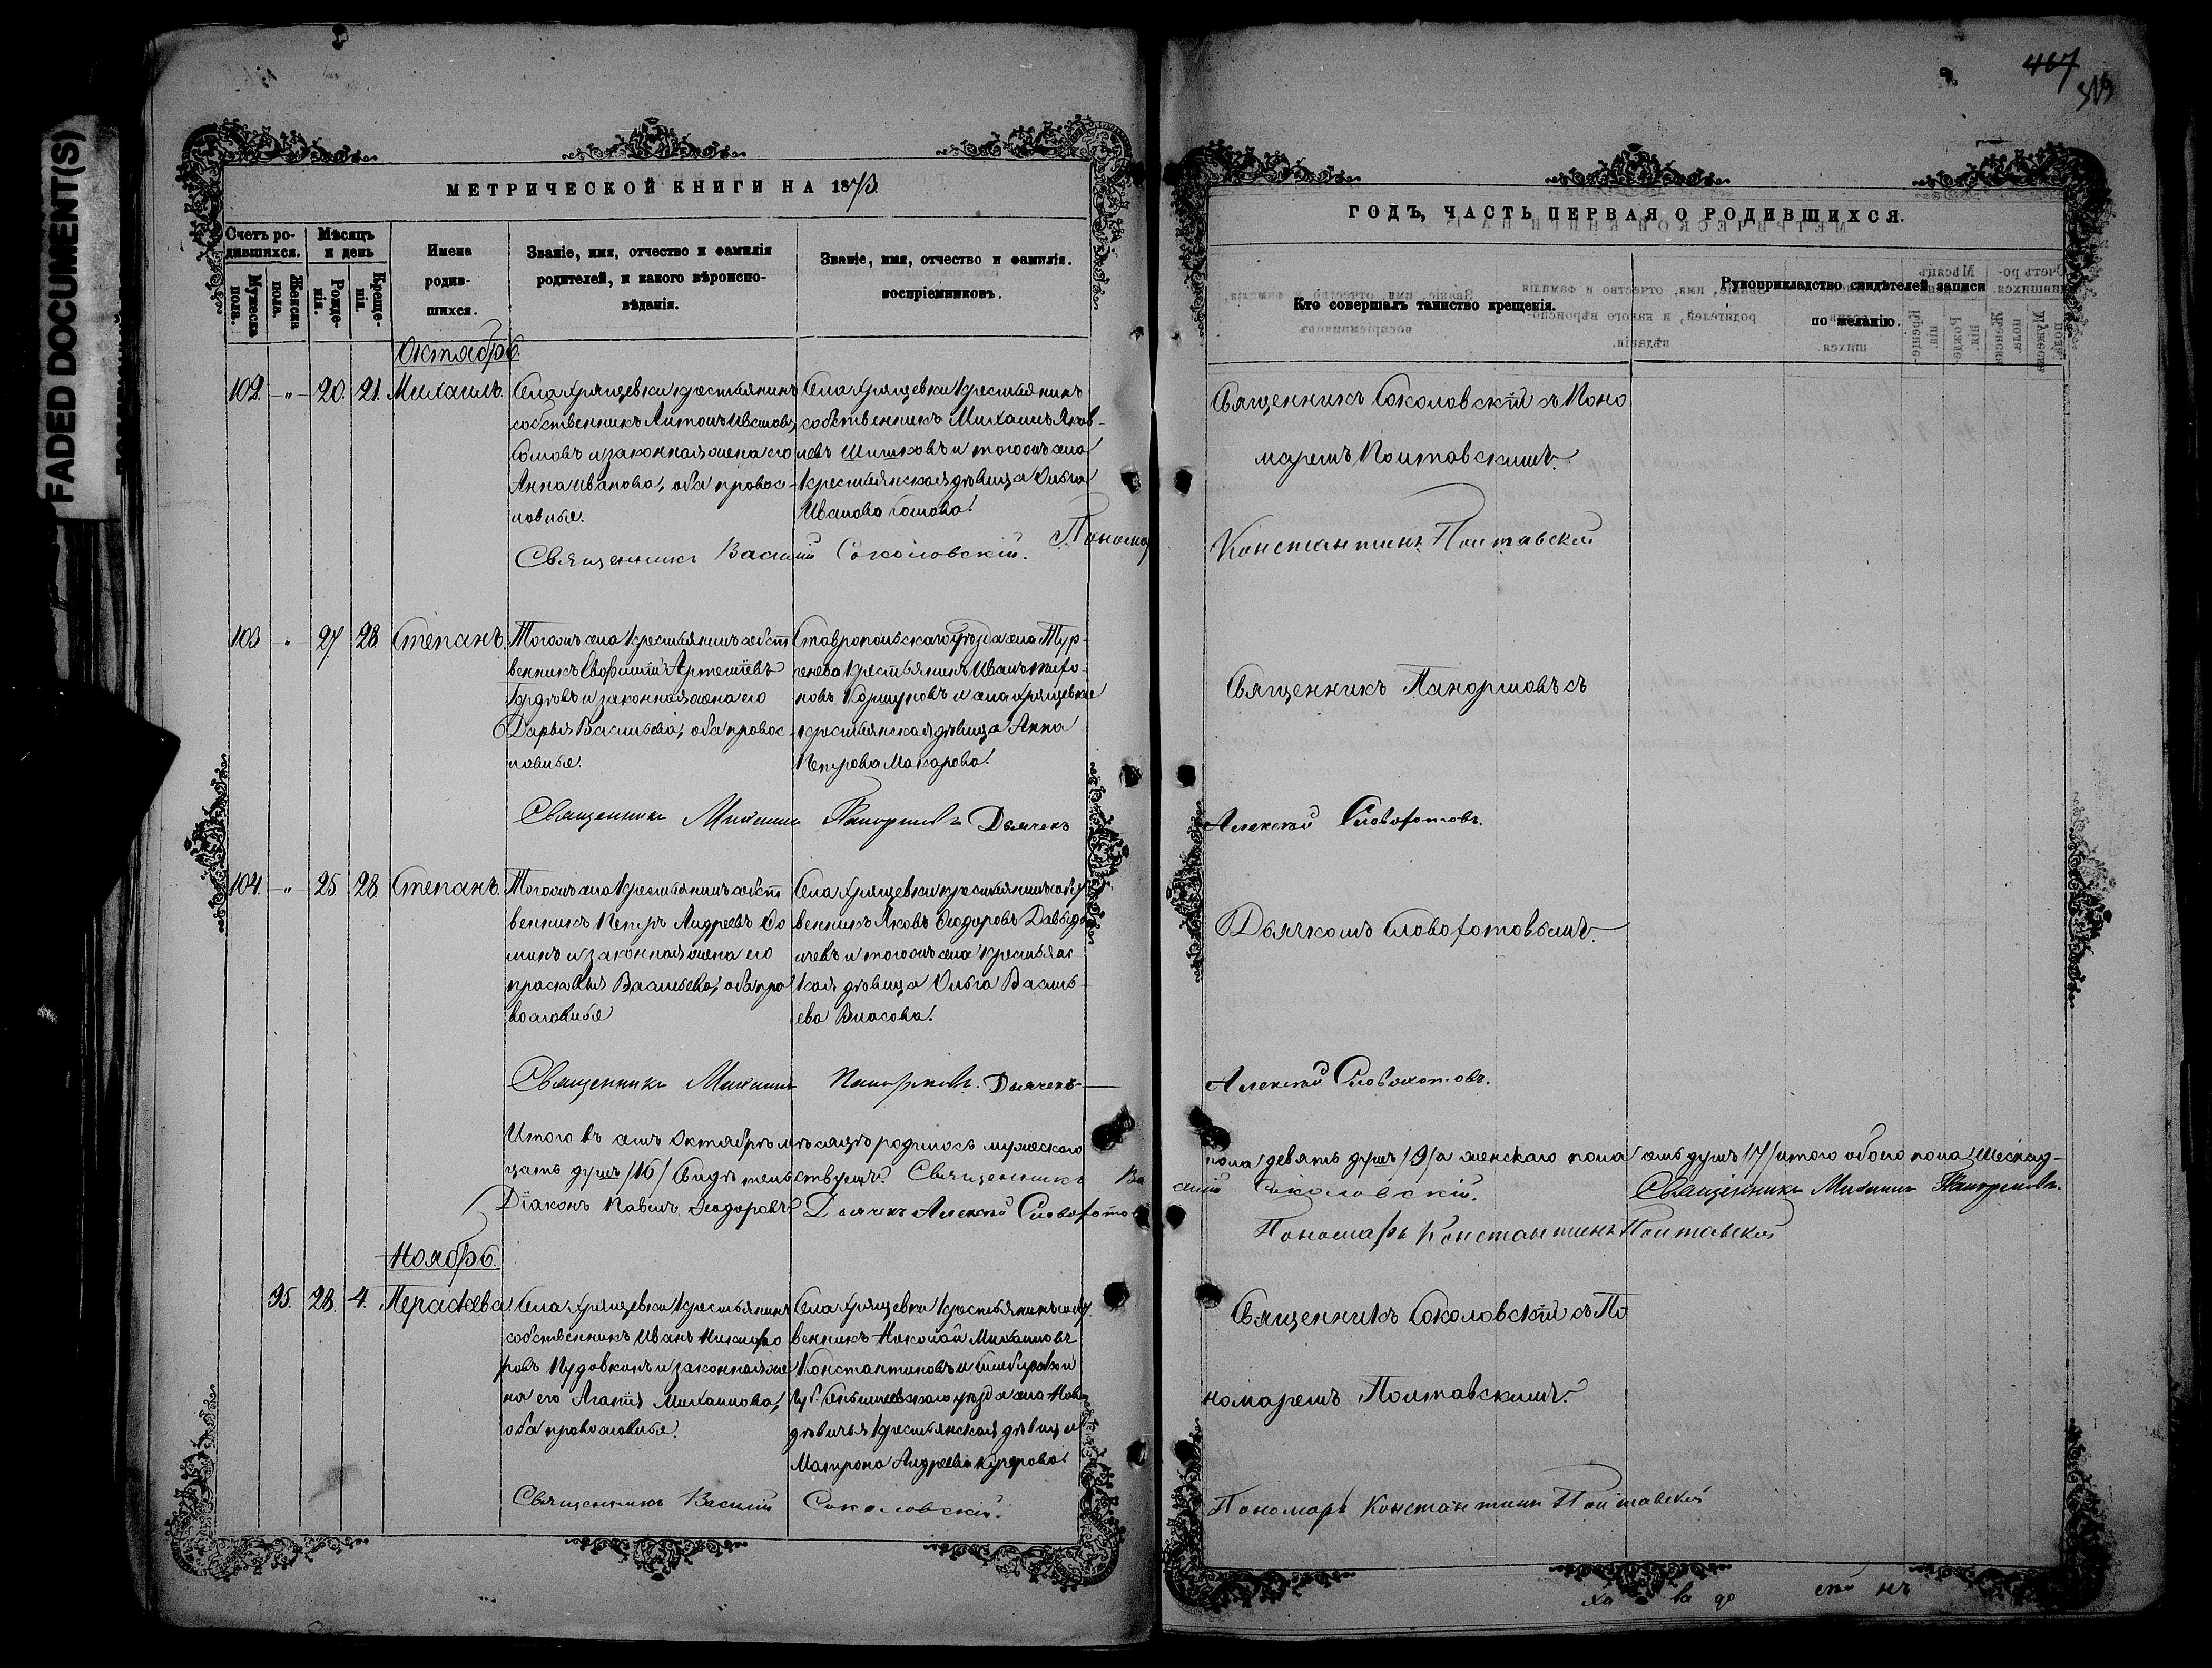 FADED DOCUMENT(S)
467
МЕТРИЧЕСКОЙ КНИГИ НА 1873
Счетъ ро-
дившихся.
Мужеска
пола.
Женска
пола.
Мѣсяцъ
и день
Рожде-
нія.
Креще-
нія.
Имена
родив-
шихся.
Званіе, имя, отчество и фамилія
родителей, и какого вѣроиспо-
вѣданія.
Званіе, имя, отчество и фамилія.
воспріемниковъ.
Октябрь
102. " 20. 21. Михаилъ.
Села Хрящевки крестьянинъ
собственникъ Антонъ
и законная жена его
Анна Иванова, оба правос-
лавные.
Села Хрящевки крестьянинъ
собственникъ Михаилъ Яков-
левъ Шишковъ и тогожъ села
крестьянская дѣвица Ольга
Иванова
Священникъ Василій Соколовскій. Пономарь
103 " 27 28 Степанъ.
Тогожъ села крестьянинъ собст
венникъ Евфимій Артемьевъ
и законная жена его
Дарья Васильева, оба правос-
лавные.
Ставропольскаго уѣзда села Тур-
генева крестьянинъ Иванъ
новъ Коршуновъ и села Хрящевки
крестьянская дѣвица Анна
Петрова Макарова.
Священникъ Михаилъ Панормовъ Дьячекъ
104. " 25 28 Степанъ.
Тогожъ села крестьянинъ собст
венникъ Петръ Андреевъ Фо
минъ и законная жена его
Прасковья Васильева, оба пра
вославные
Села Хрящевки крестьянинъ собст
венникъ Яковъ Феодоровъ Давыдо
и тогожъ села крестьянс
кая дѣвица Ольга Василь-
ева Власова.
Священникъ Михаилъ Панормовъ. Дьячекъ
Итого въ семъ Октябрѣ мѣсяцѣ родилось мужескаго
цать душъ /16/ Свидѣтельствуемъ: Священникъ Ва
Діаконъ Павелъ Феодоровъ Дьячекъ Алексѣй Словохотовъ
Ноябрь.
95. 28. 4. Параскева.
Села Хрящевки крестьянинъ
собственникъ Иванъ Никифо
ровъ Пудовкинъ и законная же
на его Агафія Михайлова,
оба православные.
Села Хрящевки крестьянинъ собст
венникъ Николай Михайловъ
Константиновъ и Симбирской
губ. уѣзда села Ново
дѣвичья крестьянская дѣвица
Матрона Андреева
Священникъ Василій Соколовскій.
ГОДЪ, ЧАСТЬ ПЕРВАЯ О РОДИВШИХСЯ.
Кто совершалъ таинство крещенія.
Рукоприкладство свидѣтелей записи
по желанію.
Священникъ Соколовскій съ Поно
маремъ Полтавскимъ.
Константинъ Полтавскій
Священникъ Панормовъ съ
Алексѣй Словохотовъ.
Дьячкомъ Словохотовымъ.
Алексѣй Словохотовъ.
пола девять душъ /9/ а женскаго пола семь душъ /7/ итого обоего пола Шестнад-
силій Соколовскій. Священникъ Михаилъ Панормовъ.
Пономарь Константинъ Полтавскій
Священникъ Соколовскій съ По
номаремъ Полтавскимъ.
Пономарь Константинъ Полтавскій